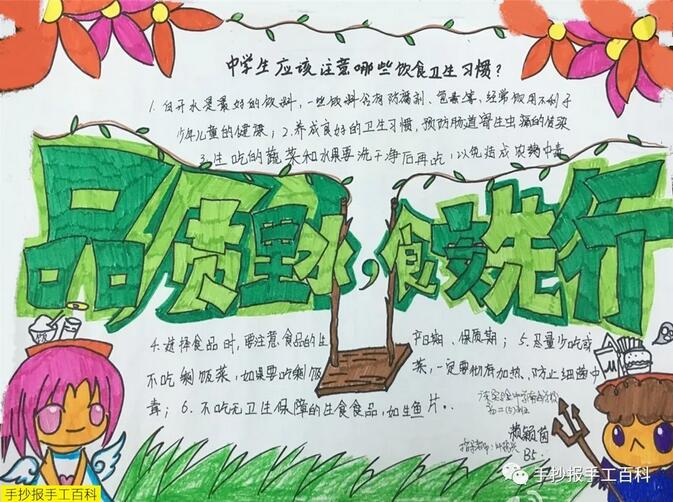 中学生应该注意哪些饮食卫生习惯？
1.白开水是最好的饮料，一些饮料含有防腐剂、色素等，经常饮用不利于
少年儿童的健康；2.养成良好的卫生习惯，预防肠道寄生虫病的传染
3.生吃的蔬菜和水果要洗干净后再吃，以免造成农药中毒
品质里水，食安先行
4.选择食品时，要注意食品的生产日期、保质期；5.尽量少吃或
不吃剩饭菜，如果要吃剩饭菜，一定要彻底加热，防止细菌中
毒；6.不吃无卫生保障的生食食品，如生鱼片..
初二(5)班
赖颖茵
指导老师：
B5.
饭
手抄报手工百科
手抄报手工百科